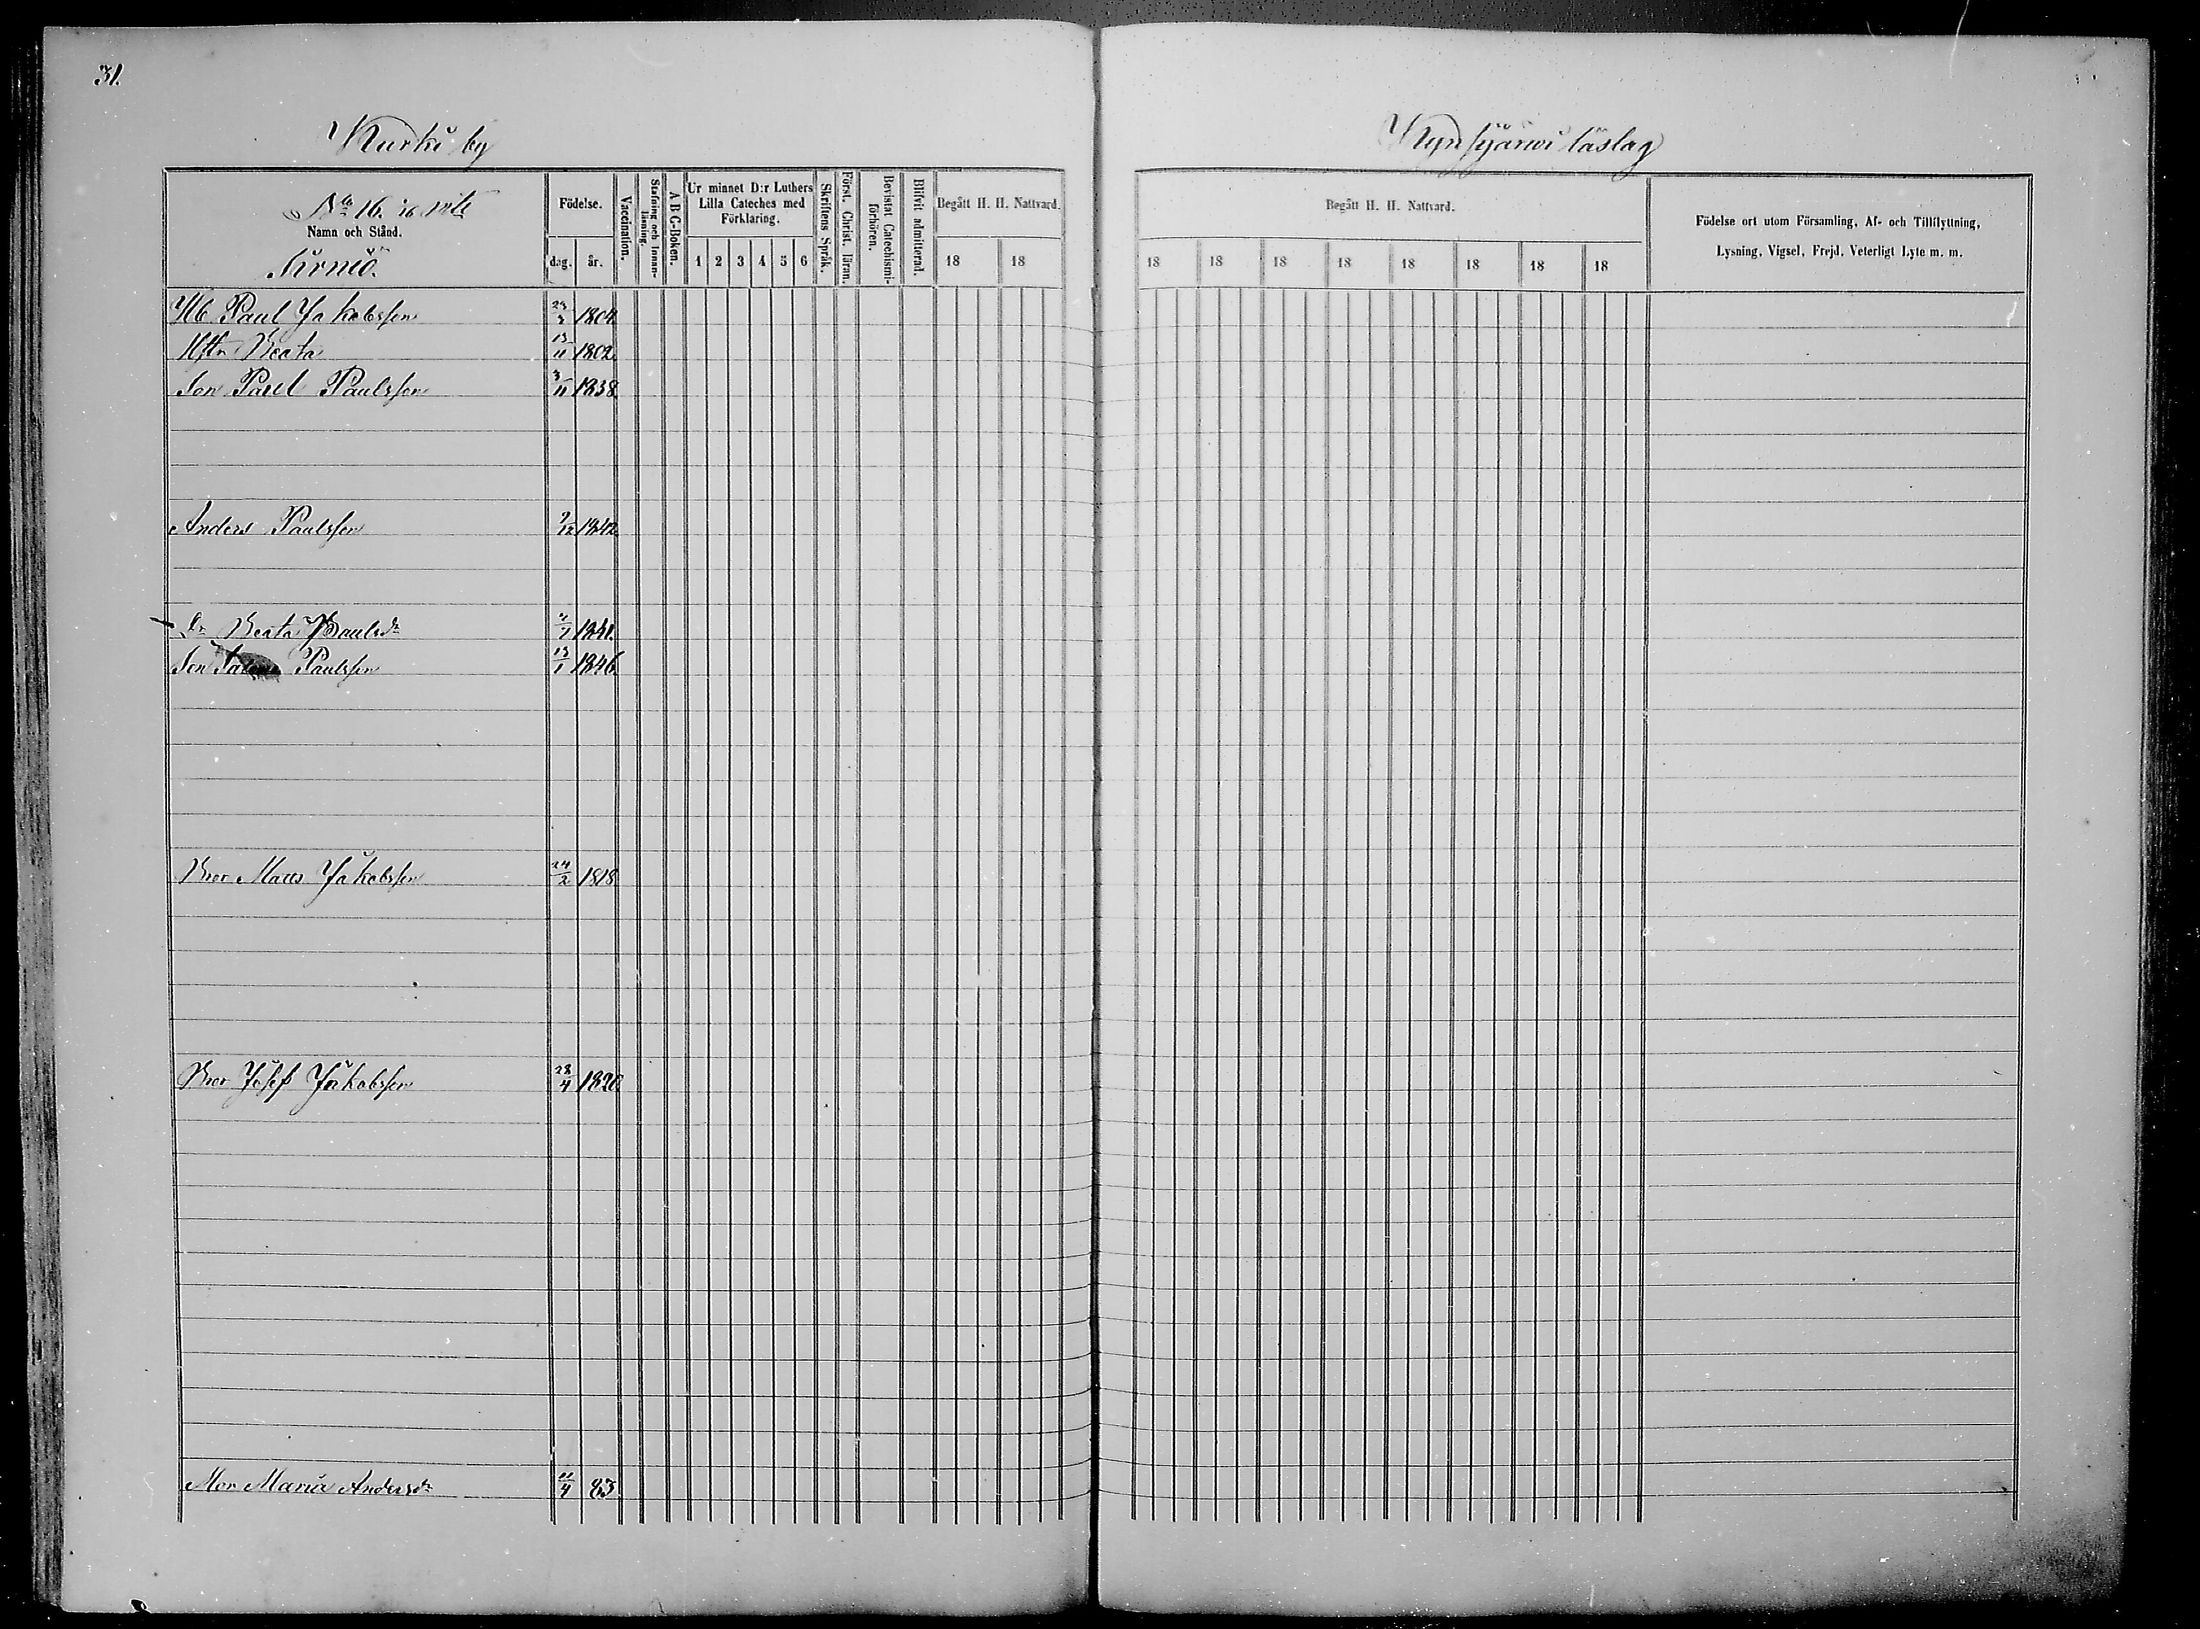 31.
Kurki by
Kynsijärwi läslag
No 16. 7/16 mtl
Namn och Stånd.
Sirniö.
Födelse.
dag. år.
Vaccination.
Stafning och Innanläsning.
A B C-Boken.
Ur minnet D:r Luthers
Lilla Cateches med
Förklaring.
1 2 3 4 5 6
Skriftens Språk.
Först. Christ. läran.
Bevistat Catechismiförhören.
Blifvit admitterad.
Begått H. H. Nattvard.
18 18
Begått H. H. Nattvard.
18 18 18 18 18 18 18 18
Födelse ort utom Församling, Af- och Tillflyttning,
Lysning, Vigsel, Frejd, Veterligt Lyte m. m.
Paul Jakobsson 1804
Beata 13/11 1802
Son Paul Paulsson 3/11 1838
Anders Paulsson 7/12 1842
Dr Beata Paulsdr
Son Paulsson 13/1 1846
Bror Matts Jakobsson 24/2 1818
Bror Josef Jakobsson 28/4 1820
Mor Maria Andersdr 11/4 83